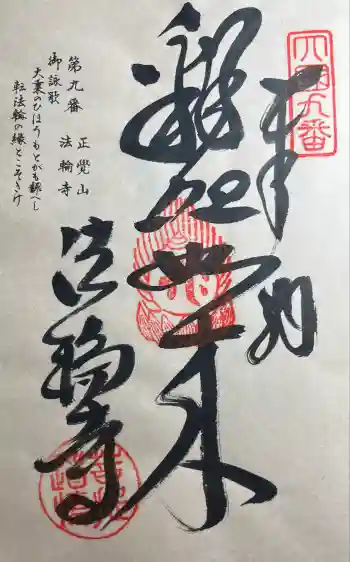 四国九番
奉納
釋迦如来
法輪寺
第九番
正覺山
法輪寺
御詠歌
大乗のひほうもとがも飜へし
転法輪の縁とこそきけ